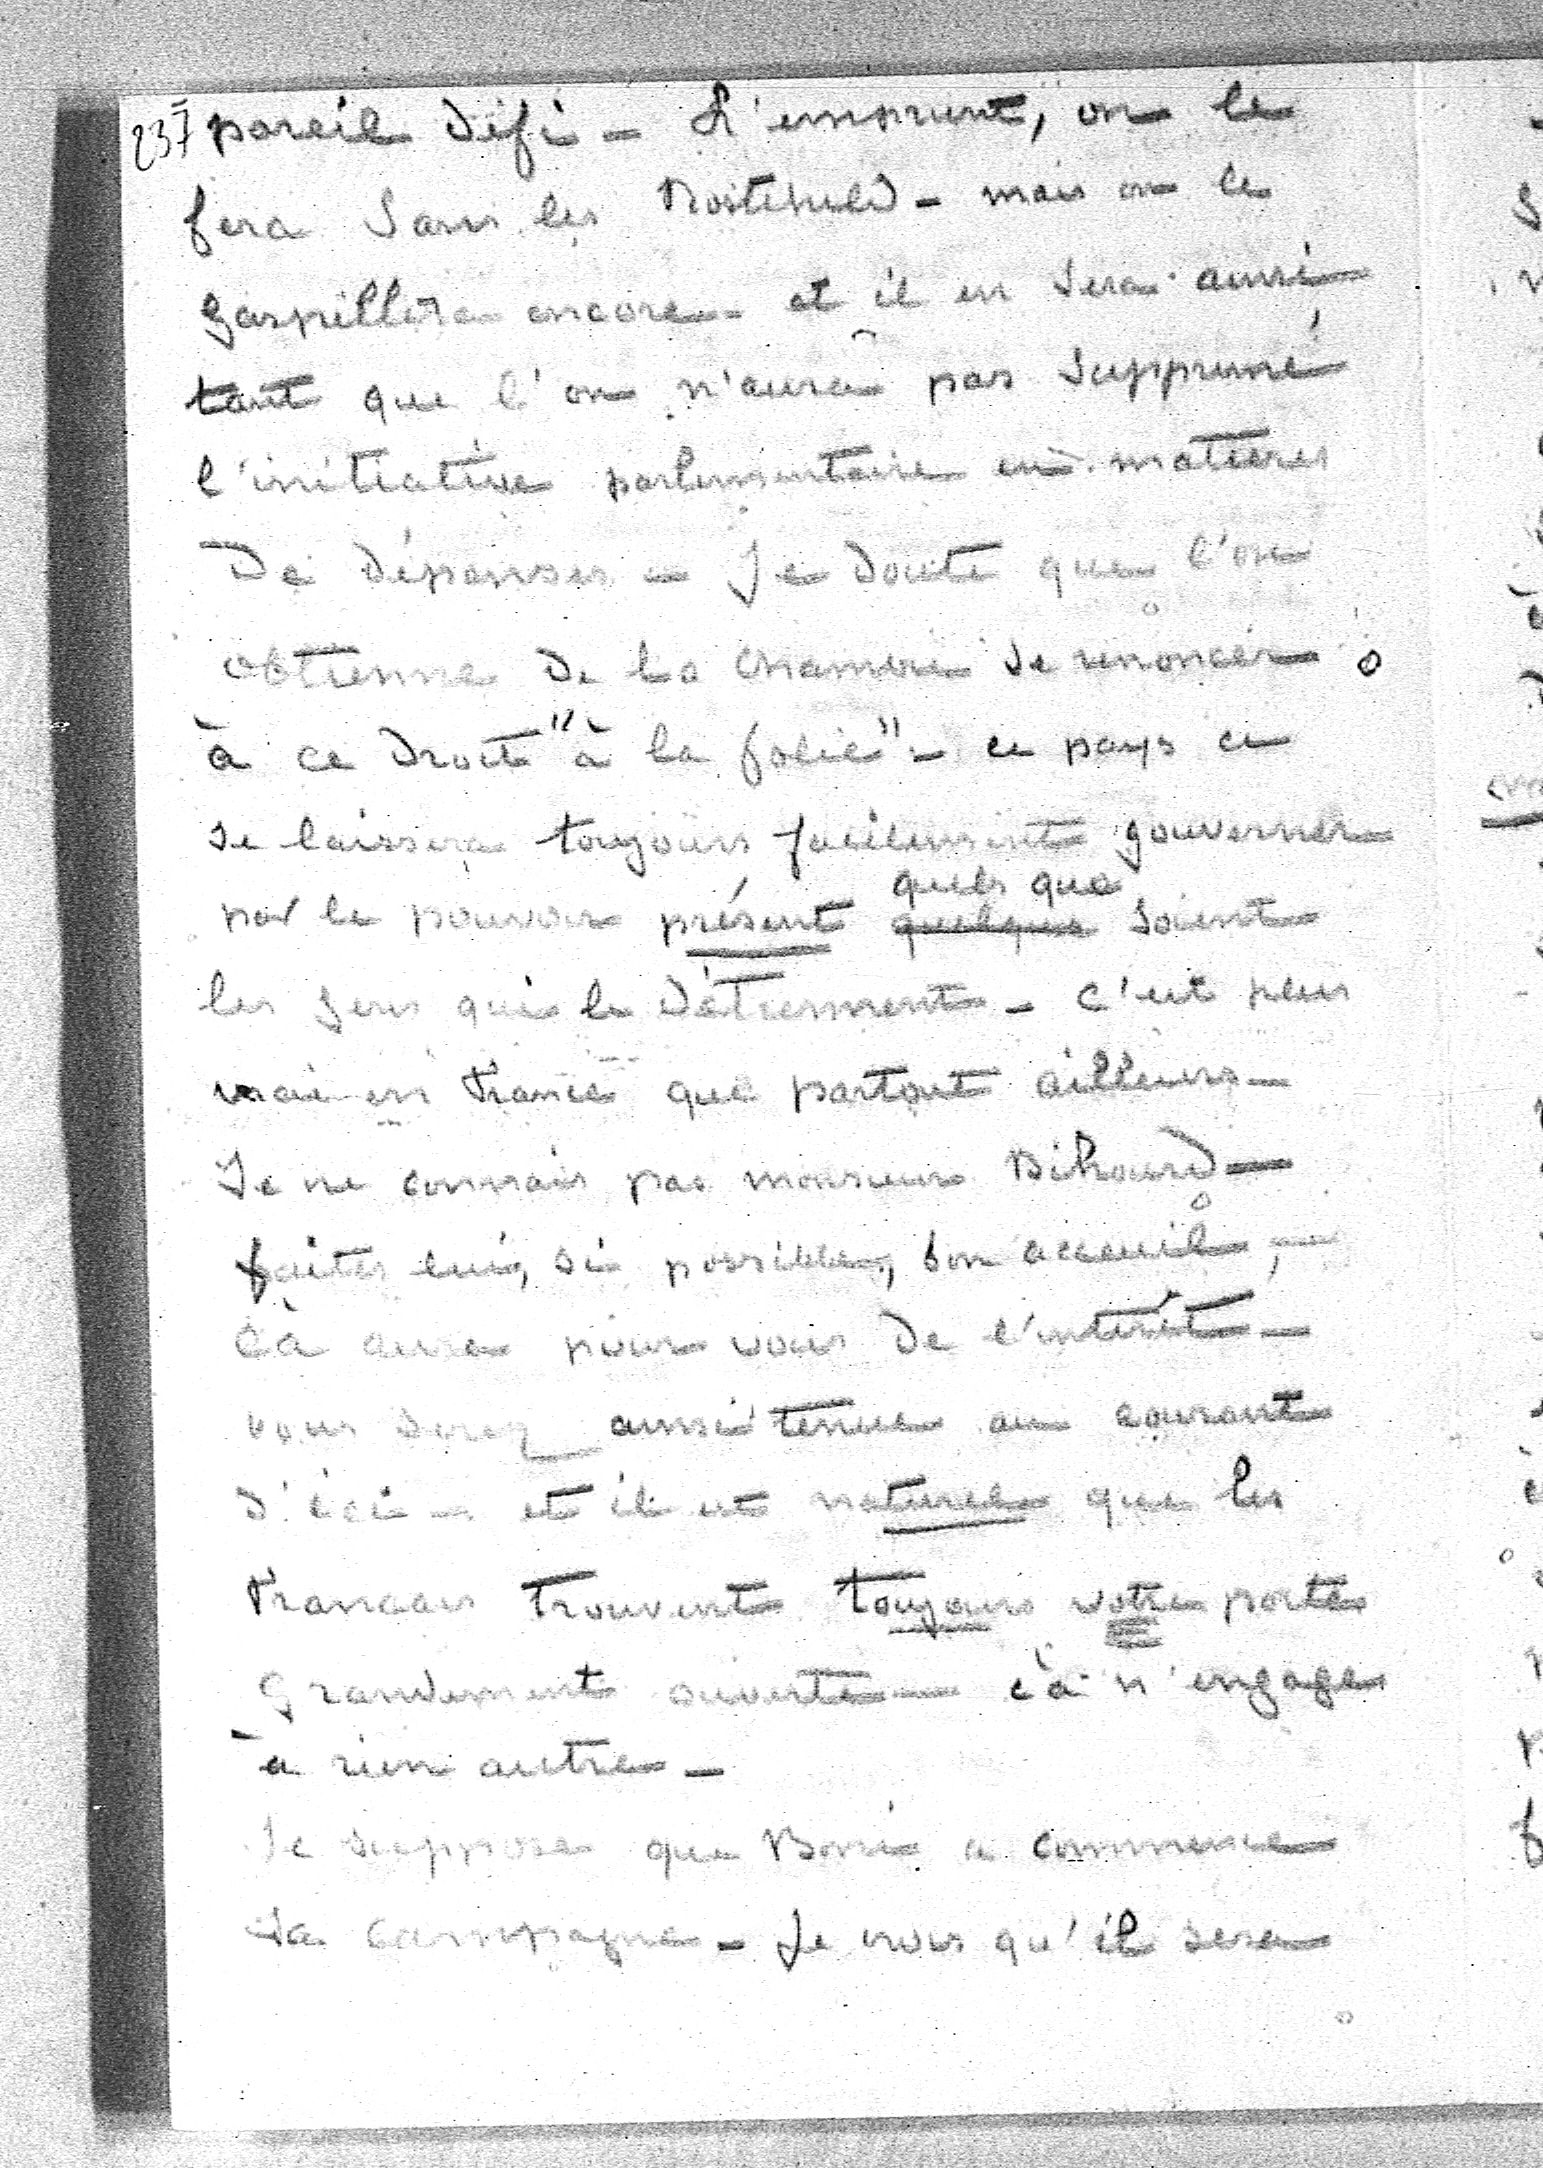 237 pareil défi - L'emprunt, on le
fera sans les Rostchild - mais on le
gaspillera encore - et il en sera ainsi
tant que l'on n'aura pas supprimé
l'initiative parlementaire en matières
De dépenses - Je doute que l'on
obtienne de la Chambre de renoncer
à ce droit "à la folie" - ce pays ci
se laissera toujours facilement gouverner
par le pouvoir présent quelque quels que soient
les gens qui le détiennent - c'est plus
vrai en France que partout ailleurs -
Je ne connais pas monsieur Bihourd -
faites lui, si possible, bon acceuil,
çà aura pour vous de l'intérêt -
vous serez ainsi tenue au courant
d'ici - et il est naturel que les
Francais trouvent toujours votre porte
grandement ouverte - çà n'engage
à rien autre -
Je suppose que a commencé
sa campagne - Je crois qu'il sera